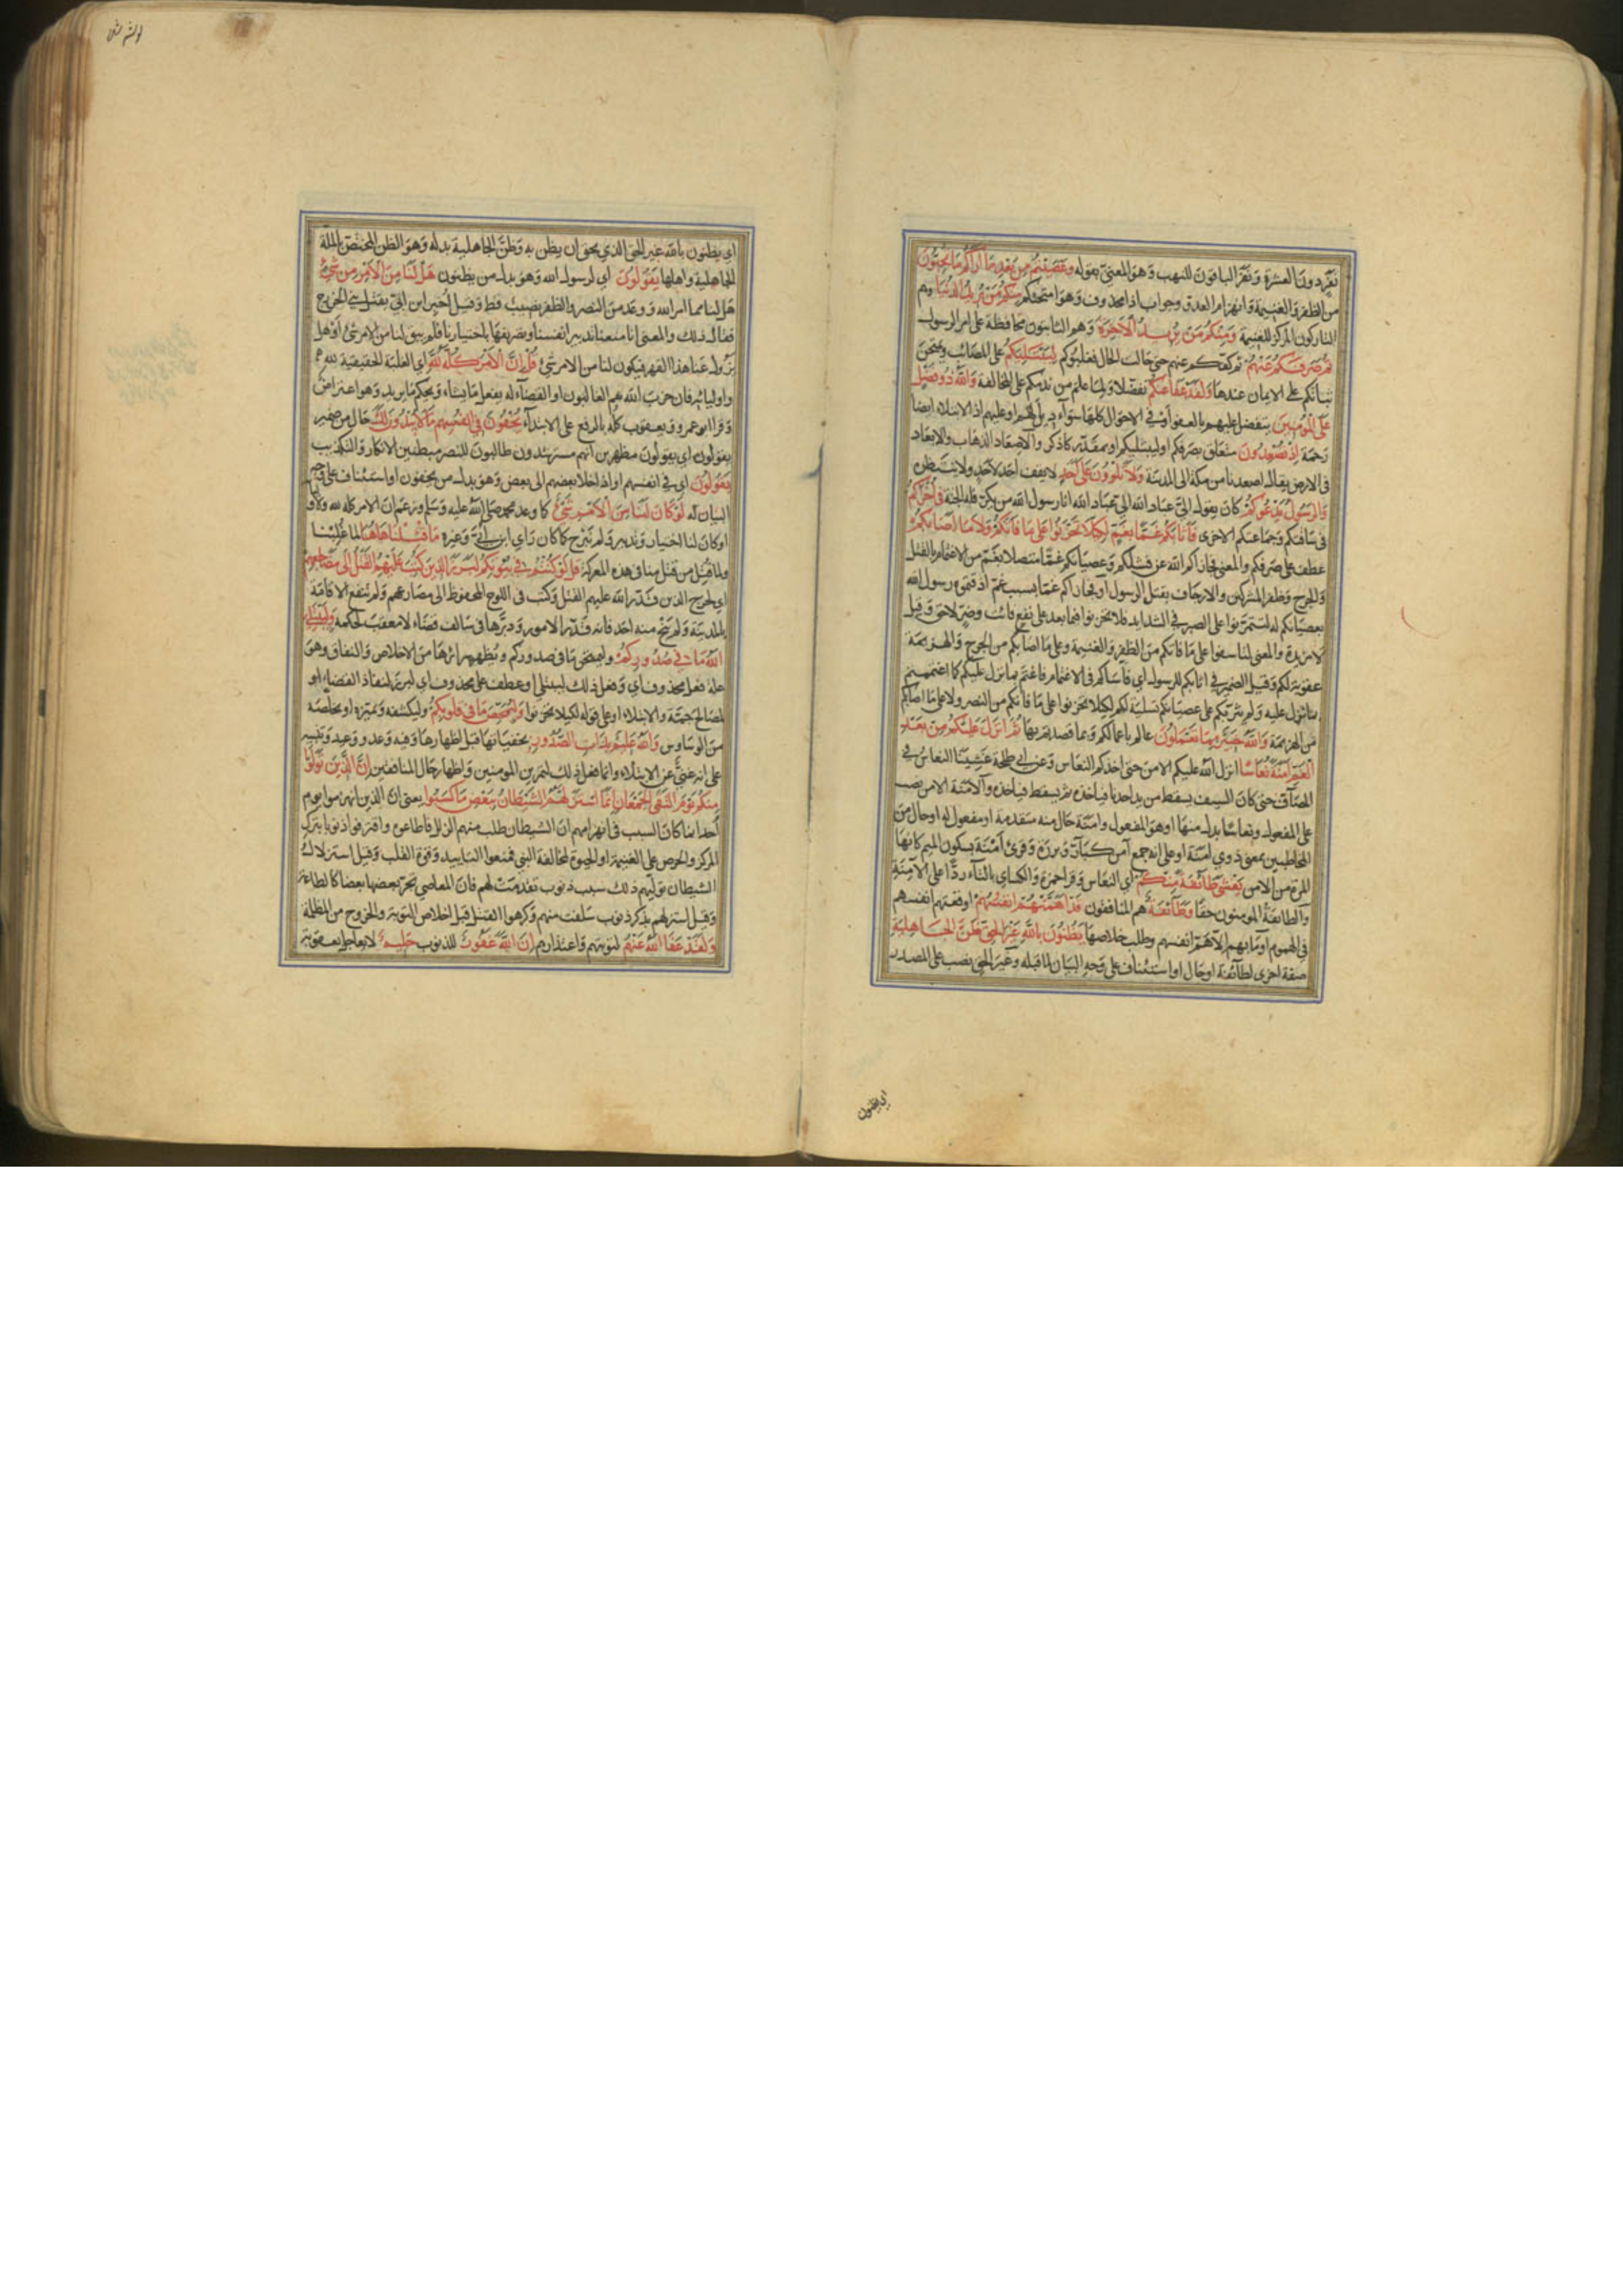 نفر دون العشرة ونفر الباقون للنهب وهو المعني بقوله وعصيتم من بعد ما اراكم ما تحبون
من الظفر والغنيمة وانهزام العدو وجواب اذا محذوف وهو امتحنكم منكم من يريد الدنيا وهم
التاركون المركز للغنيمة ومنكم من يريد الآخرة وهم الثابتون محافظة على امر الرسول
ثم صرفكم عنهم ثم كفكم عنهم حتى حالت الحال فغلبوكم ليبتليكم على المصائب ويمتحن
ثباتكم على الايمان عندها ولقد عفا عنكم تفضلا ولما علم من ندمكم على المخالفة والله ذو فضل
على المؤمنين يتفضل عليهم بالعفو او في الاحوال كلها سواء اديل لهم او عليهم اذ الابتلاء ايضا
رحمة اذ تصعدون متعلق بصرفكم او ليبتليكم او بمقدر كاذكر والاصعاد الذهاب والابعاد
في الارض يقال اصعدنا من مكة الى المدينة ولا تلوون على احد لا يقف احد لاحد ولا ينتظره
والرسول يدعوكم كان يقول اليّ عباد الله اليّ عباد الله انا رسول الله من يكرّ فله الجنة في أخراكم
في ساقتكم وجماعتكم الاخرى فأثابكم غمّا بغم لكيلا تحزنوا على ما فاتكم ولا ما أصابكم
عطف على صرفكم والمعنى فجازاكم الله عن فشلكم وعصيانكم غمّا متصلا بغم من الاغتمام بالقتل
والجرح وظفر المشركين والارجاف بقتل الرسول او فجازاكم غمّا بسبب غم اذقتموه رسول الله
بعصيانكم له لتتمرنوا على الصبر في الشدايد فلا تحزنوا فيما بعد على نفع فائت وضرّ لاحق وقيل
لا مزيدة والمعنى لتاسفوا على ما فاتكم من الظفر والغنيمة وعلى ما اصابكم من الجرح والهزيمة
عقوبة لكم وقيل الضمير في اثابكم للرسول اي فآساكم في الاغتمام فاغتم بما نزل عليكم كما اغتممتم
بما نزل عليه ولم يثربكم على عصيانكم تسلية لكم لكيلا تحزنوا على ما فاتكم من النصر ولا على ما اصابكم
من الهزيمة والله خبير بما تعملون عالم باعمالكم وبما قصدتم بها ثم انزل عليكم من بعد
الغم امنة نعاسا انزل الله عليكم الامن حتى اخذكم النعاس وعن ابي طلحة غشينا النعاس في
المصاف حتى كان السيف يسقط من يد احدنا فياخذه ثم يسقط فياخذه والامنة الامن نصب
على المفعول ونعاسا بدل منها او هو المفعول وامنة حال منه متقدمة او مفعول له او حال من
المخاطبين بمعنى ذوي امنة او على انه جمع آمن كبارّ وبررة وقرئ أمْنة بسكون الميم كانها
المرة من الامن يغشى طائفة منكم اي النعاس وقرأ حمزة والكسائي بالتاء ردّا على الامنة
والطائفة المؤمنون حقا وطائفة هم المنافقون قد اهمتهم انفسهم اوقعتهم انفسهم
في الهموم او ما بهم الا هم انفسهم وطلب خلاصها يظنون بالله غير الحق ظن الجاهلية
صفة اخرى لطائفة او حال او استئناف على وجه البيان لما قبله وغير الحق نصب على المصدر
اي يظنون
اي يظنون بالله غير الحق الذي يحق ان يظن به وظن الجاهلية بدله وهو الظن المختص بالملة
الجاهلية واهلها يقولون اي لرسول الله وهو بدل من يظنون هل لنا من الامر من شئ
هل لنا مما امر الله ووعد من النصر والظفر نصيب قط وقيل اخبر ابن ابي بقتل بني الخزرج
فقال ذلك والمعنى انا منعنا تدبير انفسنا وتصريفها باختيارنا فلم يبق لنا من الامر شئ او هل
يزول عنا هذا القهر فيكون لنا من الامر شئ قل ان الامر كله لله اي الغلبة الحقيقية لله
واوليائه فان حزب الله هم الغالبون او القضاء له يفعل ما يشاء ويحكم ما يريد وهو اعتراض
وقرأ ابو عمرو ويعقوب كله بالرفع على الابتداء يخفون في انفسهم ما لا يبدون لك حال من ضمير
يقولون اي يقولون مظهرين انهم مسترشدون طالبون للنصر مبطنين الانكار والتكذيب
يقولون اي في انفسهم او اذا خلا بعضهم الى بعض وهو بدل من يخفون او استئناف على وجه
البيان له لو كان لنا من الامر شئ كما وعد محمد صلى الله عليه وسلم وزعم ان الامر كله لله ولاوليائه
او كان لنا اختيار وتدبير ولم نبرح كما كان رأي ابن ابي وغيره ما قتلنا هاهنا لما غلبنا
ولما قتل من قتل منا في هذه المعركة قل لو كنتم في بيوتكم لبرز الذين كتب عليهم القتل الى مضاجعهم
اي لخرج الذين قدر الله عليهم القتل وكتب في اللوح المحفوظ الى مصارعهم ولم تنفع الاقامة
بالمدينة ولم ينج منه احد فانه قدر الامور ودبرها في سالف قضائه لا معقب لحكمه وليبتلي
الله ما في صدوركم وليمتحن ما في صدوركم ويظهر سرائرها من الاخلاص والنفاق وهو
علة فعل محذوف اي وفعل ذلك ليبتلي او عطف على محذوف اي لبرز لنفاذ القضاء او
لمصالح جمة والابتلاء او على قوله لكيلا تحزنوا وليمحص ما في قلوبكم وليكشفه ويميزه او يخلصه
من الوساوس والله عليم بذات الصدور بخفياتها قبل اظهارها وفيه وعد ووعيد وتنبيه
على انه غني عن الابتلاء وانما فعل ذلك لتمرين المؤمنين واظهار حال المنافقين ان الذين تولوا
منكم يوم التقى الجمعان انما استزلهم الشيطان ببعض ما كسبوا يعني ان الذين انهزموا يوم
أحد انما كان السبب في انهزامهم ان الشيطان طلب منهم الزلل فاطاعوه واقترفوا ذنوبا بترك
المركز والحرص على الغنيمة او الحيوة لمخالفة النبي فمنعوا التاييد وقوة القلب وقيل استزلال
الشيطان توليهم ذلك بسبب ذنوب تقدمت لهم فان المعاصي تجر بعضها بعضا كالطاعة
وقيل استزلهم بذكر ذنوب سلفت منهم وكرهوا القتل قبل اخلاص التوبة والخروج من المظلمة
ولقد عفا الله عنهم لتوبتهم واعتذارهم ان الله غفور للذنوب حليم لا يعاجل بعقوبة